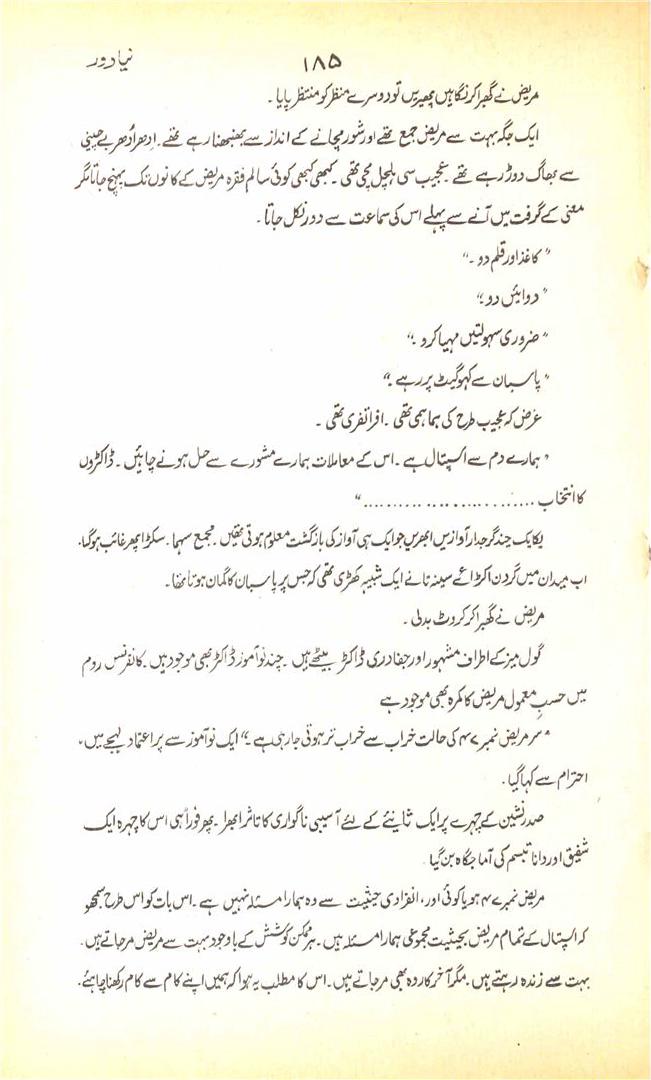 نیا دور
۱۸۵
مریض نے گھبرا کر نگاہیں پھیریں تو دوسرے منظر کو منتظر پایا ۔
ایک جگہ بہت سے مریض جمع تھے اور شور مچانے کے انداز سے بھنبھنا رہے تھے ۔ اِدھر اُدھر بے چینی
سے بھاگ دوڑ رہے تھے ۔ عجیب سی ہلچل مچی تھی ۔ کبھی کبھی کوئی سالم فقرہ مریض کے کانوں تک پہنچ جاتا مگر
معنی کے گرفت میں آنے سے پہلے اس کی سماعت سے دور نکل جاتا ۔
" کاغذ اور قلم دو ۔"
" دوایئں دو ۔"
" ضروری سہولتیں مہیا کرو ۔"
" پاسبان سے کہو گیٹ پر رہے ۔"
غرض کہ عجیب طرح کی ہما ہمی تھی ۔ افرا تفری تھی ۔
" ہمارے دم سے اسپتال ہے ۔ اس کے معاملات ہمارے مشورے سے حل ہونے چاہئیں ۔ ڈاکٹروں
کا انتخاب ..............................."
یکایک چند گرجدار آوازیں ابھریں جو ایک ہی آواز کی بازگشت معلوم ہوتی تھیں ۔ مجمع سہما ۔ سکڑا پھر غائب ہو گیا ۔
اب میدان میں گردن اکڑائے سینہ تانے ایک شبیہہ کھڑی تھی کہ جس پر پاسبان کا گمان ہوتا تھا ۔
مریض نے گھبرا کر کروٹ بدلی ۔
گول میز کے اطراف مشہور اور جغادری ڈاکٹر بیٹھے ہیں ۔ چند نوآموز ڈاکٹر بھی موجود ہیں ۔ کانفرنس روم
میں حسبِ معمول مریض کا کمرہ بھی موجود ہے
" سر مریض نمبر ۴۷ کی حالت خراب سے خراب تر ہوتی جا رہی ہے ۔" ایک نوآموز سے پر اعتماد لہجے میں ،
احترام سے کہا گیا ۔
صدر نشین کے چہرے پر ایک ثانیئے کے لئے آسیبی ناگواری کا تاثر ابھرا ۔ پھر فوراً ہی اس کا چہرہ ایک
شفیق اور دانا تبسم کی آماجگاہ بن گیا
مریض نمبر ۴۷ ہو یا کوئی اور، انفرادی حیثیت سے وہ ہمارا مسئلہ نہیں ہے ۔ اس بات کو اس طرح سمجھو
کہ اسپتال کے تمام مریض بحیثیت مجموعی ہمارا مسئلہ ہیں ۔ ہر ممکن کوشش کے باوجود بہت سے مریض مر جاتے ہیں ۔
بہت سے زندہ رہتے ہیں ۔ مگر آخر کار وہ بھی مر جاتے ہیں ۔ اس کا مطلب یہ ہوا کہ ہمیں اپنے کام سے کام رکھنا چاہئے ۔